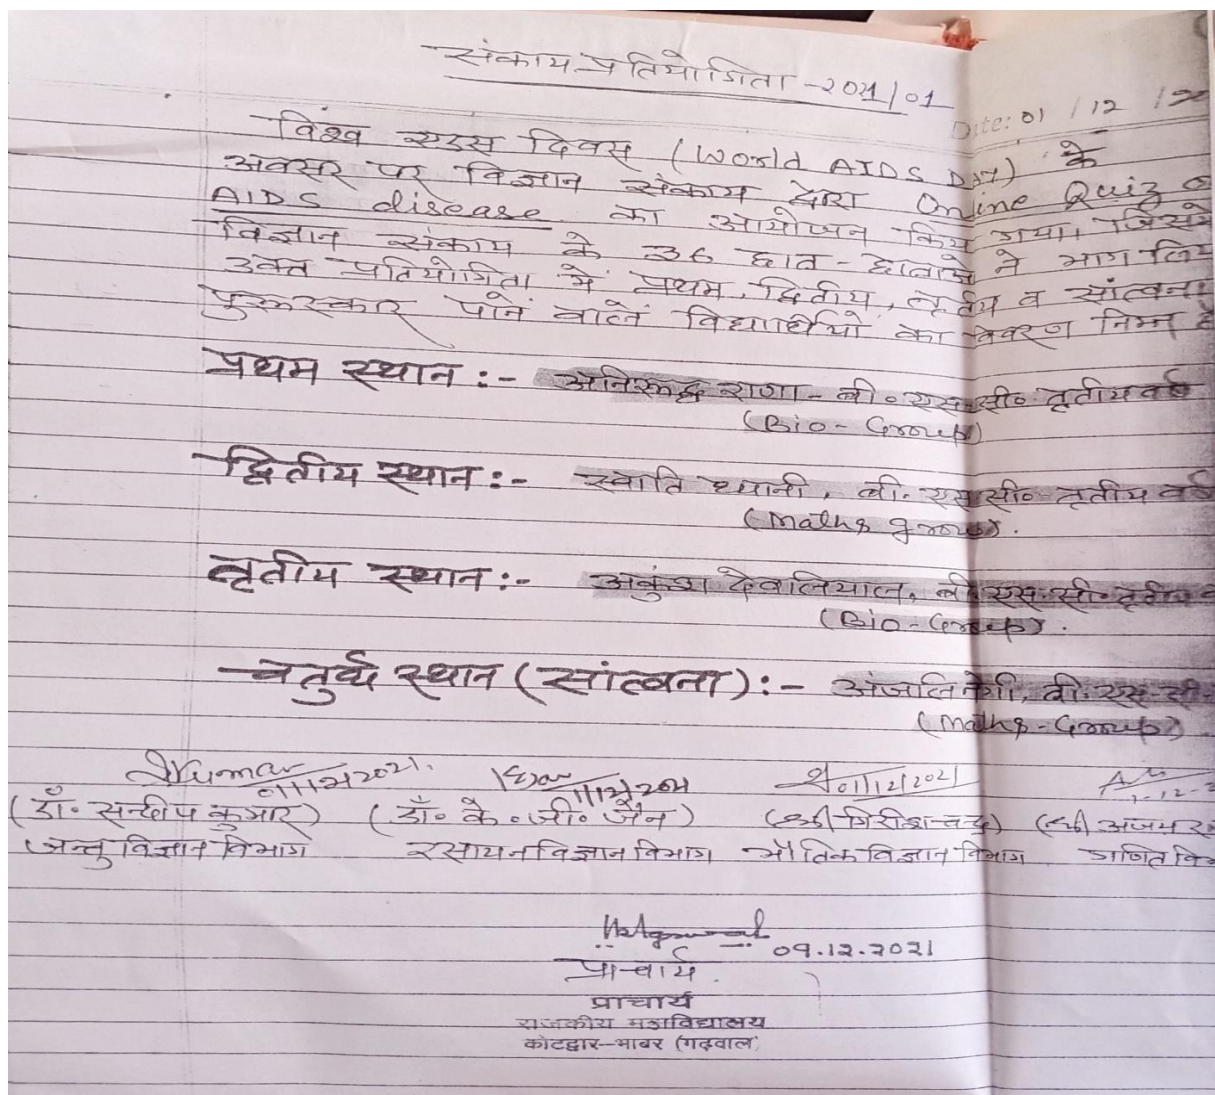 संकाय प्रतियोगिता - 2021/01
Date: 01 / 12 / 20
विश्व एड्स दिवस (World AIDS Day) के
अवसर पर विज्ञान संकाय द्वारा Online Quiz
AIDS disease का आयोजन किया गया। जिसमें
विज्ञान संकाय के 36 छात्र-छात्राओं ने भाग लिय
उक्त प्रतियोगिता में प्रथम, द्वितीय, तृतीय व सांत्वना
पुरूस्कार पाने वाले विद्यार्थीयो का विवरण निम्न है
प्रथम स्थान :- अनिरूद्ध राणा - बी०एस०सी० तृतीय वर्ष
(Bio-Group)
द्वितीय स्थान :- स्वाति ध्यानी, बी.एस०सी० तृतीय वर्ष
(Maths group).
तृतीय स्थान :- अकुंश देवलियाल, बी.एस.सी. तृतीय व
(Bio-Group).
चतुर्थ स्थान (सांत्वना) :- अंजलि नेगी, बी.एस.सी.
(Maths-Group)
SKumar 01/12/2021. 01/12/2021 01/12/2021
(डॉ. सन्दीप कुमार) (डॉ० के० जी० जैन) (श्री गिरीश चन्द्र) (श्री अजय र
जन्तु विज्ञान विभाग रसायन विज्ञान विभाग भौतिक विज्ञान विभाग गणित वि
09.12.2021
प्राचार्य.
प्राचार्य
राजकीय महाविद्यालय
कोटद्वार-भाबर (गढ़वाल)